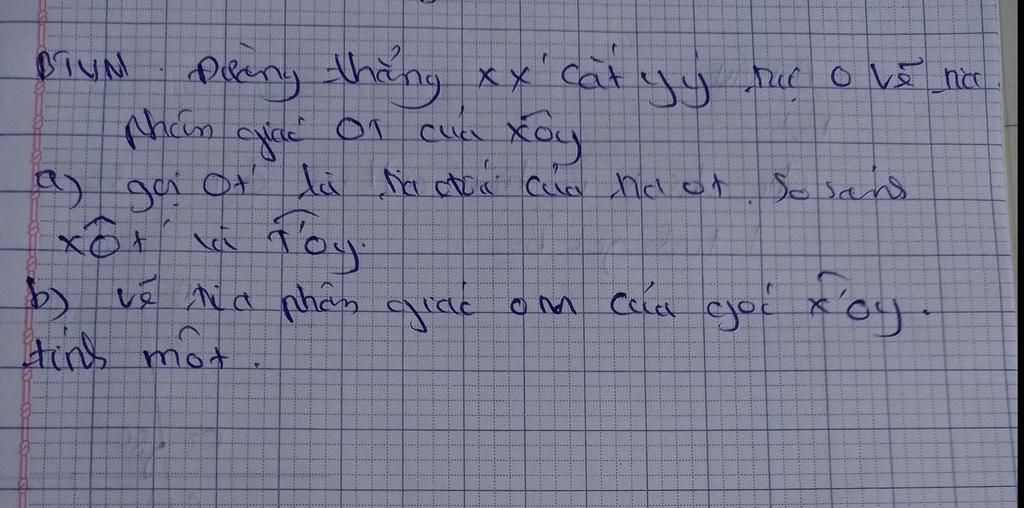 BTVN. Đường thẳng xx' cắt yy' tại O vẽ tia
phân giác Ot của xôy
a) gọi Ot' là tia đối của tia ot. So sánh
xôt' và t'ôy.
b) vẽ tia phân giác om của góc x'ôy.
tính môt.